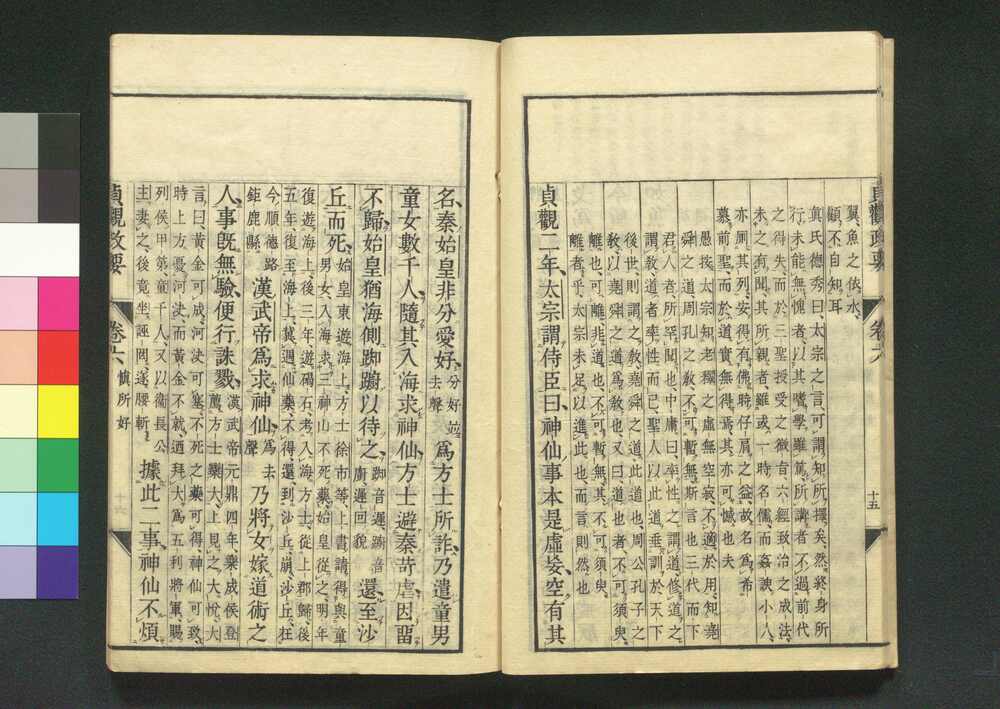 貞觀政要
卷六
十五
翼、魚之依水、
顧不自知耳
眞氏德秀曰、太宗之言、可謂知所擇矣、然終身所
行、未能無愧者、以其嗜學雖篤、所講者不過前代
之得失、而於三聖授受之微旨、六經致治之成法、
未之有聞、其所親者、雖或一時名儒、而姦諛小人、
亦厠其列、安得有佛時仔肩之益、故名爲希
慕前聖、而於道實無得焉、其亦可憾也夫
愚按、太宗知老釋之虛無空寂、不適於用、知堯
舜之道周孔之敎、不可暫無、斯言也、三代而下
君人者、所罕聞也、中庸曰、率性之謂道、修道之
謂敎、道者率性而已、聖人以此道垂訓於天下
後世、則謂之敎、堯舜之道、此道也、周公孔子之
敎、以堯舜之道爲敎也、又曰、道也者、不可須臾
離也、可離非道也、不可暫無、其不可須臾
離者乎、太宗未足以進此也、而言則然也
貞觀二年、太宗謂侍臣曰、神仙事本是虛妄、空有其
名、秦始皇非分愛好、分好並去聲爲方士所詐、乃遣童男
童女數千人、隨其入海求神仙、方士避秦苛虐、因畱
不歸、始皇猶海側踟躕以待之、踟音遲、躕音廚、遲回貌還至沙
丘而死、始皇東遊海上、方士徐市等、上書請得與童男女、入海求三神山不死藥、始皇從之、明年
復遊海上、後三年、遊碣石、考入海方士、從上郡歸、後
五年、復至海上、冀遇仙藥、不得、還到沙丘崩、沙丘、在
今順德路鉅鹿縣漢武帝爲求神仙、爲去聲乃將女嫁道術之
人、事旣無驗、便行誅戮、漢武帝元鼎四年、樂成侯登薦方士欒大、上見之大悅、大
言曰、黃金可成、河決可塞、不死之藥可得、神仙可致、
時上方憂河決、而黃金不就、迺拜大、爲五利將軍、賜
列侯甲第、童千人、又以衞長公
主妻之、後竟坐誣罔、遂腰斬、據此二事、神仙不煩
貞觀政要
卷六
愼所好
十六